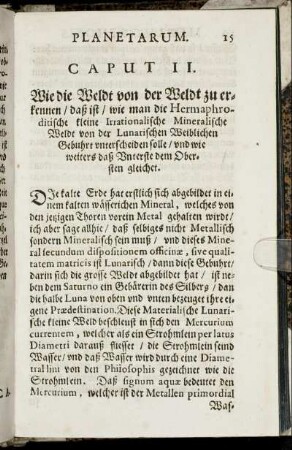 PLANETARUM. 15
CAPUT II.
Wie die Weldt von der Weldt zu er-
kennen / daß ist / wie man die Hermaphro-
ditische kleine Irrationalische Mineralische
Weldt von der Lunarischen Weiblichen
Gebuhrt vnterscheiden solle / vnd wie
weiters daß Vnterste dem Ober-
sten gleichet.
DIe kalte Erde hat erstlich sich abgebildet in ei-
nem kalten wässerichen Mineral, welches von
den jezigen Thoren vorein Metal gehalten wirdt /
ich aber sage allhie / daß selbiges nicht Metallisch
sondern Mineralisch sein muß / vnd dieses Mine-
ral secundum dispositionem officinæ, sive quali-
tatem matricis ist Lunarisch / dann diese Gebuhrt /
darin sich die grosse Weldt abgebildet hat / ist ne-
ben dem Saturno ein Gebärerin des Silbers / dan
die halbe Luna von oben vnd vnten bezeuget ihre ei-
gene Prædestination. Diese Materialische Lunari-
sche kleine Weldt beschleust in sich den Mercurium
currentem, welcher als ein Strohmlein per latus
Diametri darauß fliesset / die Strohmlein seind
Wasser / vnd daß Wasser wird durch eine Diame-
tral lini von den Philosophis gezeichnet wie die
Strohmlein. Daß signum aquæ bedeutet den
Mercurium, welcher ist der Metallen primordial
Was-